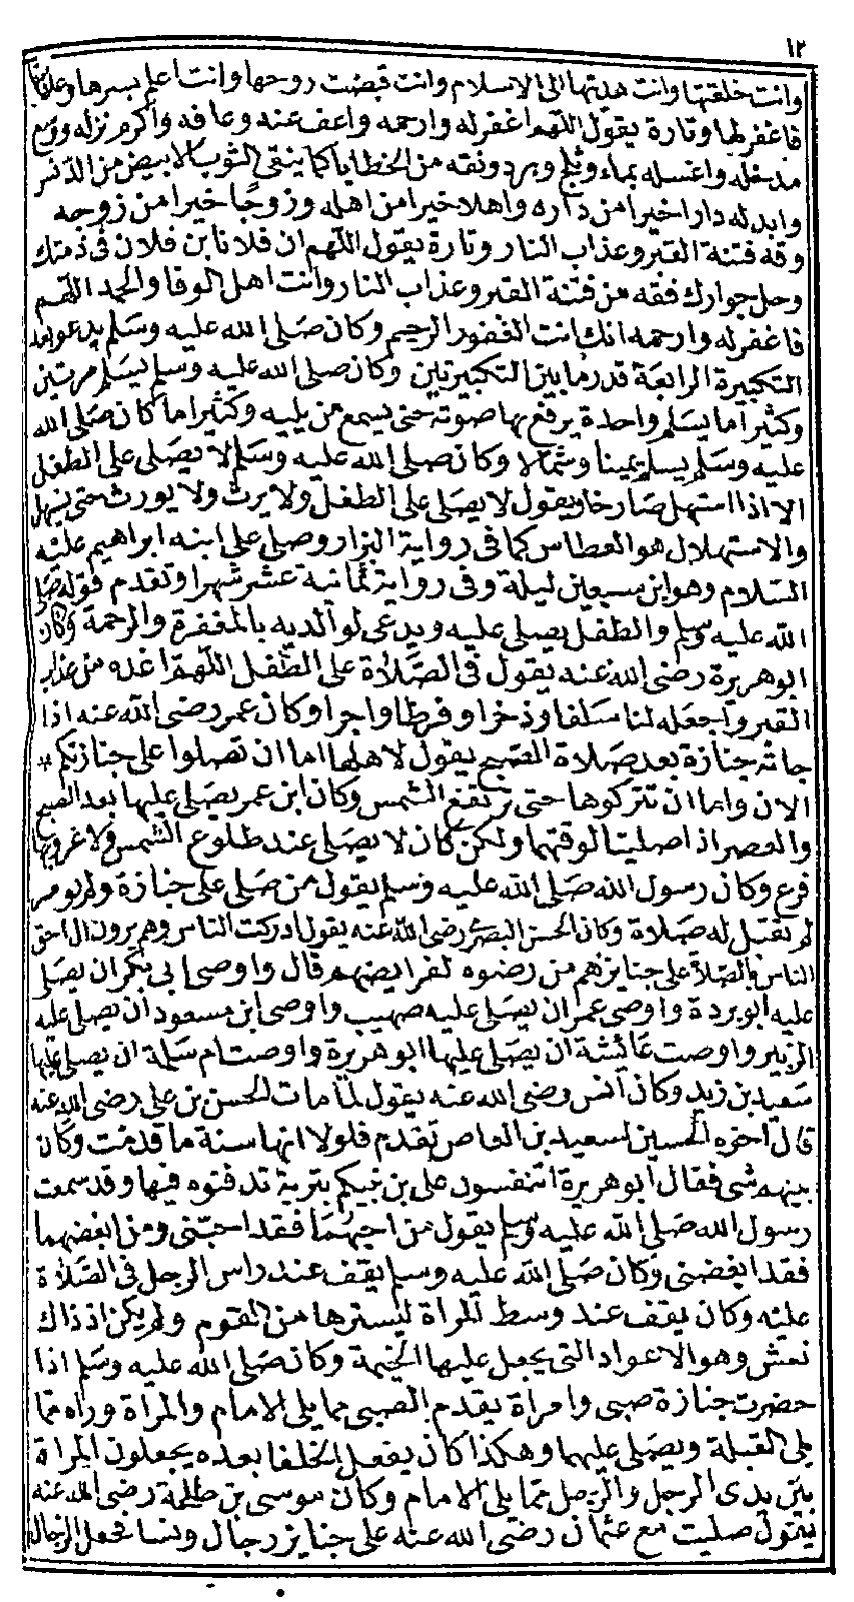 ١٢
وانت خلقتها وانت هديتها الى الاسلام وانت قبضت روحها وانت اعلم بسرها وعلانيتها
فاغفر لها وتارة يقول اللهم اغفر له وارحمه واعف عنه وعافه واكرم نزله ووسع
مدخله واغسله بماء وثلج وبرد ونقه من الخطايا كما ينقى الثوب الابيض من الدنس
وابدله دارا خيرا من داره واهلا خيرا من اهله وزوجا خيرا من زوجه
وقه فتنة القبر وعذاب النار وتارة يقول اللهم ان فلانا بن فلان فى ذمتك
وحل جوارك فقه من فتنة القبر وعذاب النار وانت اهل الوفا والحمد اللهم
فاغفر له وارحمه انك انت الغفور الرحيم وكان صلى الله عليه وسلم يدعو بعد
التكبيرة الرابعة قدر ما بين التكبيرتين وكان صلى الله عليه وسلم يسلم مرتين
وكثيرا ما يسلم واحدة يرفع بها صوته حتى يسمع من يليه وكثيرا ما كان صلى الله
عليه وسلم يسلم يمينا وشمالا وكان صلى الله عليه وسلم لا يصلى على الطفل
الا اذا استهل صارخا ويقول لا يصلى على الطفل ولا يرث ولا يورث حتى يستهل
والاستهلال هو العطاس كما فى رواية البزار وصلى على ابنه ابراهيم عليه
السلام وهو ابن سبعين ليلة وفى رواية ثمانية عشر شهرا وتقدم قوله صلى
الله عليه وسلم والطفل يصلى عليه ويدعى لوالديه بالمغفرة والرحمة وكان
ابو هريرة رضى الله عنه يقول فى الصلاة على الطفل اللهم اعذه من عذاب
القبر واجعله لنا سلفا وذخرا وفرطا واجرا وكان عمر رضى الله عنه اذا
جائه جنازة بعد صلاة الصبح يقول لاهلها اما ان تصلوا على جنازتكم *
الان واما ان تتركوها حتى ترتفع الشمس وكان ابن عمر يصلى عليها بعد الصبح
والعصر اذا صليتا لوقتهما ولكن كان لا يصلى عند طلوع الشمس ولا غروبها
فرع وكان رسول الله صلى الله عليه وسلم يقول من صلى على جنازة ولم يومر
لم تقبل له صلاة وكان الحسن البصرى رضى الله عنه يقول ادركت الناس وهم يرون ان احق
الناس بالصلاة على جنايزهم من رضوه لفرايضهم قال واوصى ابى بكر ان يصلى
عليه ابو بردة واوصى عمر ان يصلى عليه صهيب واوصى ابن مسعود ان يصلى عليه
الزبير واوصت عائشة ان يصلى عليها ابو هريرة واوصت ام سلمة ان يصلى عليها
سعيد بن زيد وكان انس رضى الله عنه يقول لما مات الحسن بن على رضى الله عنه
قال اخوه الحسين لسعيد بن العاص تقدم فلولا انها سنة ما قدمت وكان
بينهم شى فقال ابو هريرة اتنفسون على بن نبيكم بتربة تدفنوه فيها وقد سمعت
رسول الله صلى الله عليه وسلم يقول من احبهما فقد احبنى ومن ابغضهما
فقد ابغضنى وكان صلى الله عليه وسلم يقف عند راس الرجل فى الصلاة
عليه وكان يقف عند وسط المراة ليسترها من القوم ولم يكن اذ ذاك
نعش وهو الاعواد التى يجعل عليها الخيمة وكان صلى الله عليه وسلم اذا
حضرت جنازة صبى وامراة يقدم الصبى مما يلى الامام والمراة وراه مما
يلى القبلة ويصلى عليهما وهكذا كان يفعل الخلفا بعده يجعلون المراة
بين يدى الرجل والرجل مما يلى الامام وكان موسى بن طلحة رضى الله عنه
يقول صليت مع عثمان رضى الله عنه على جنايز رجال ونسا فجعل الرجال